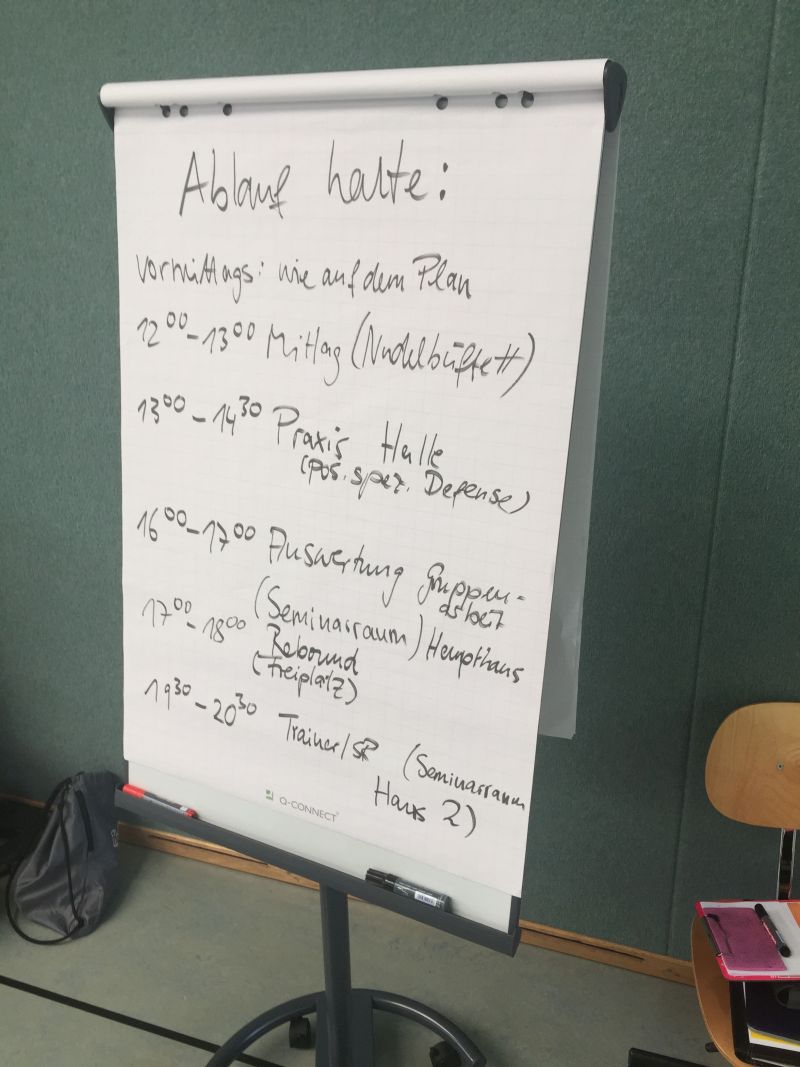 Ablauf heute:
vormittags: wie auf dem Plan
12⁰⁰-13⁰⁰ Mittag (Nudelbüfett)
13⁰⁰-14³⁰ Praxis Halle
(pos. spez. Defense)
16⁰⁰-17⁰⁰ Auswertung Gruppen-
arbeit
(Seminarraum) Haupthaus
17⁰⁰-18⁰⁰ Rebound
(Freiplatz)
19³⁰-20³⁰ Trainer/SR (Seminarraum
Haus 2)
Q-CONNECT